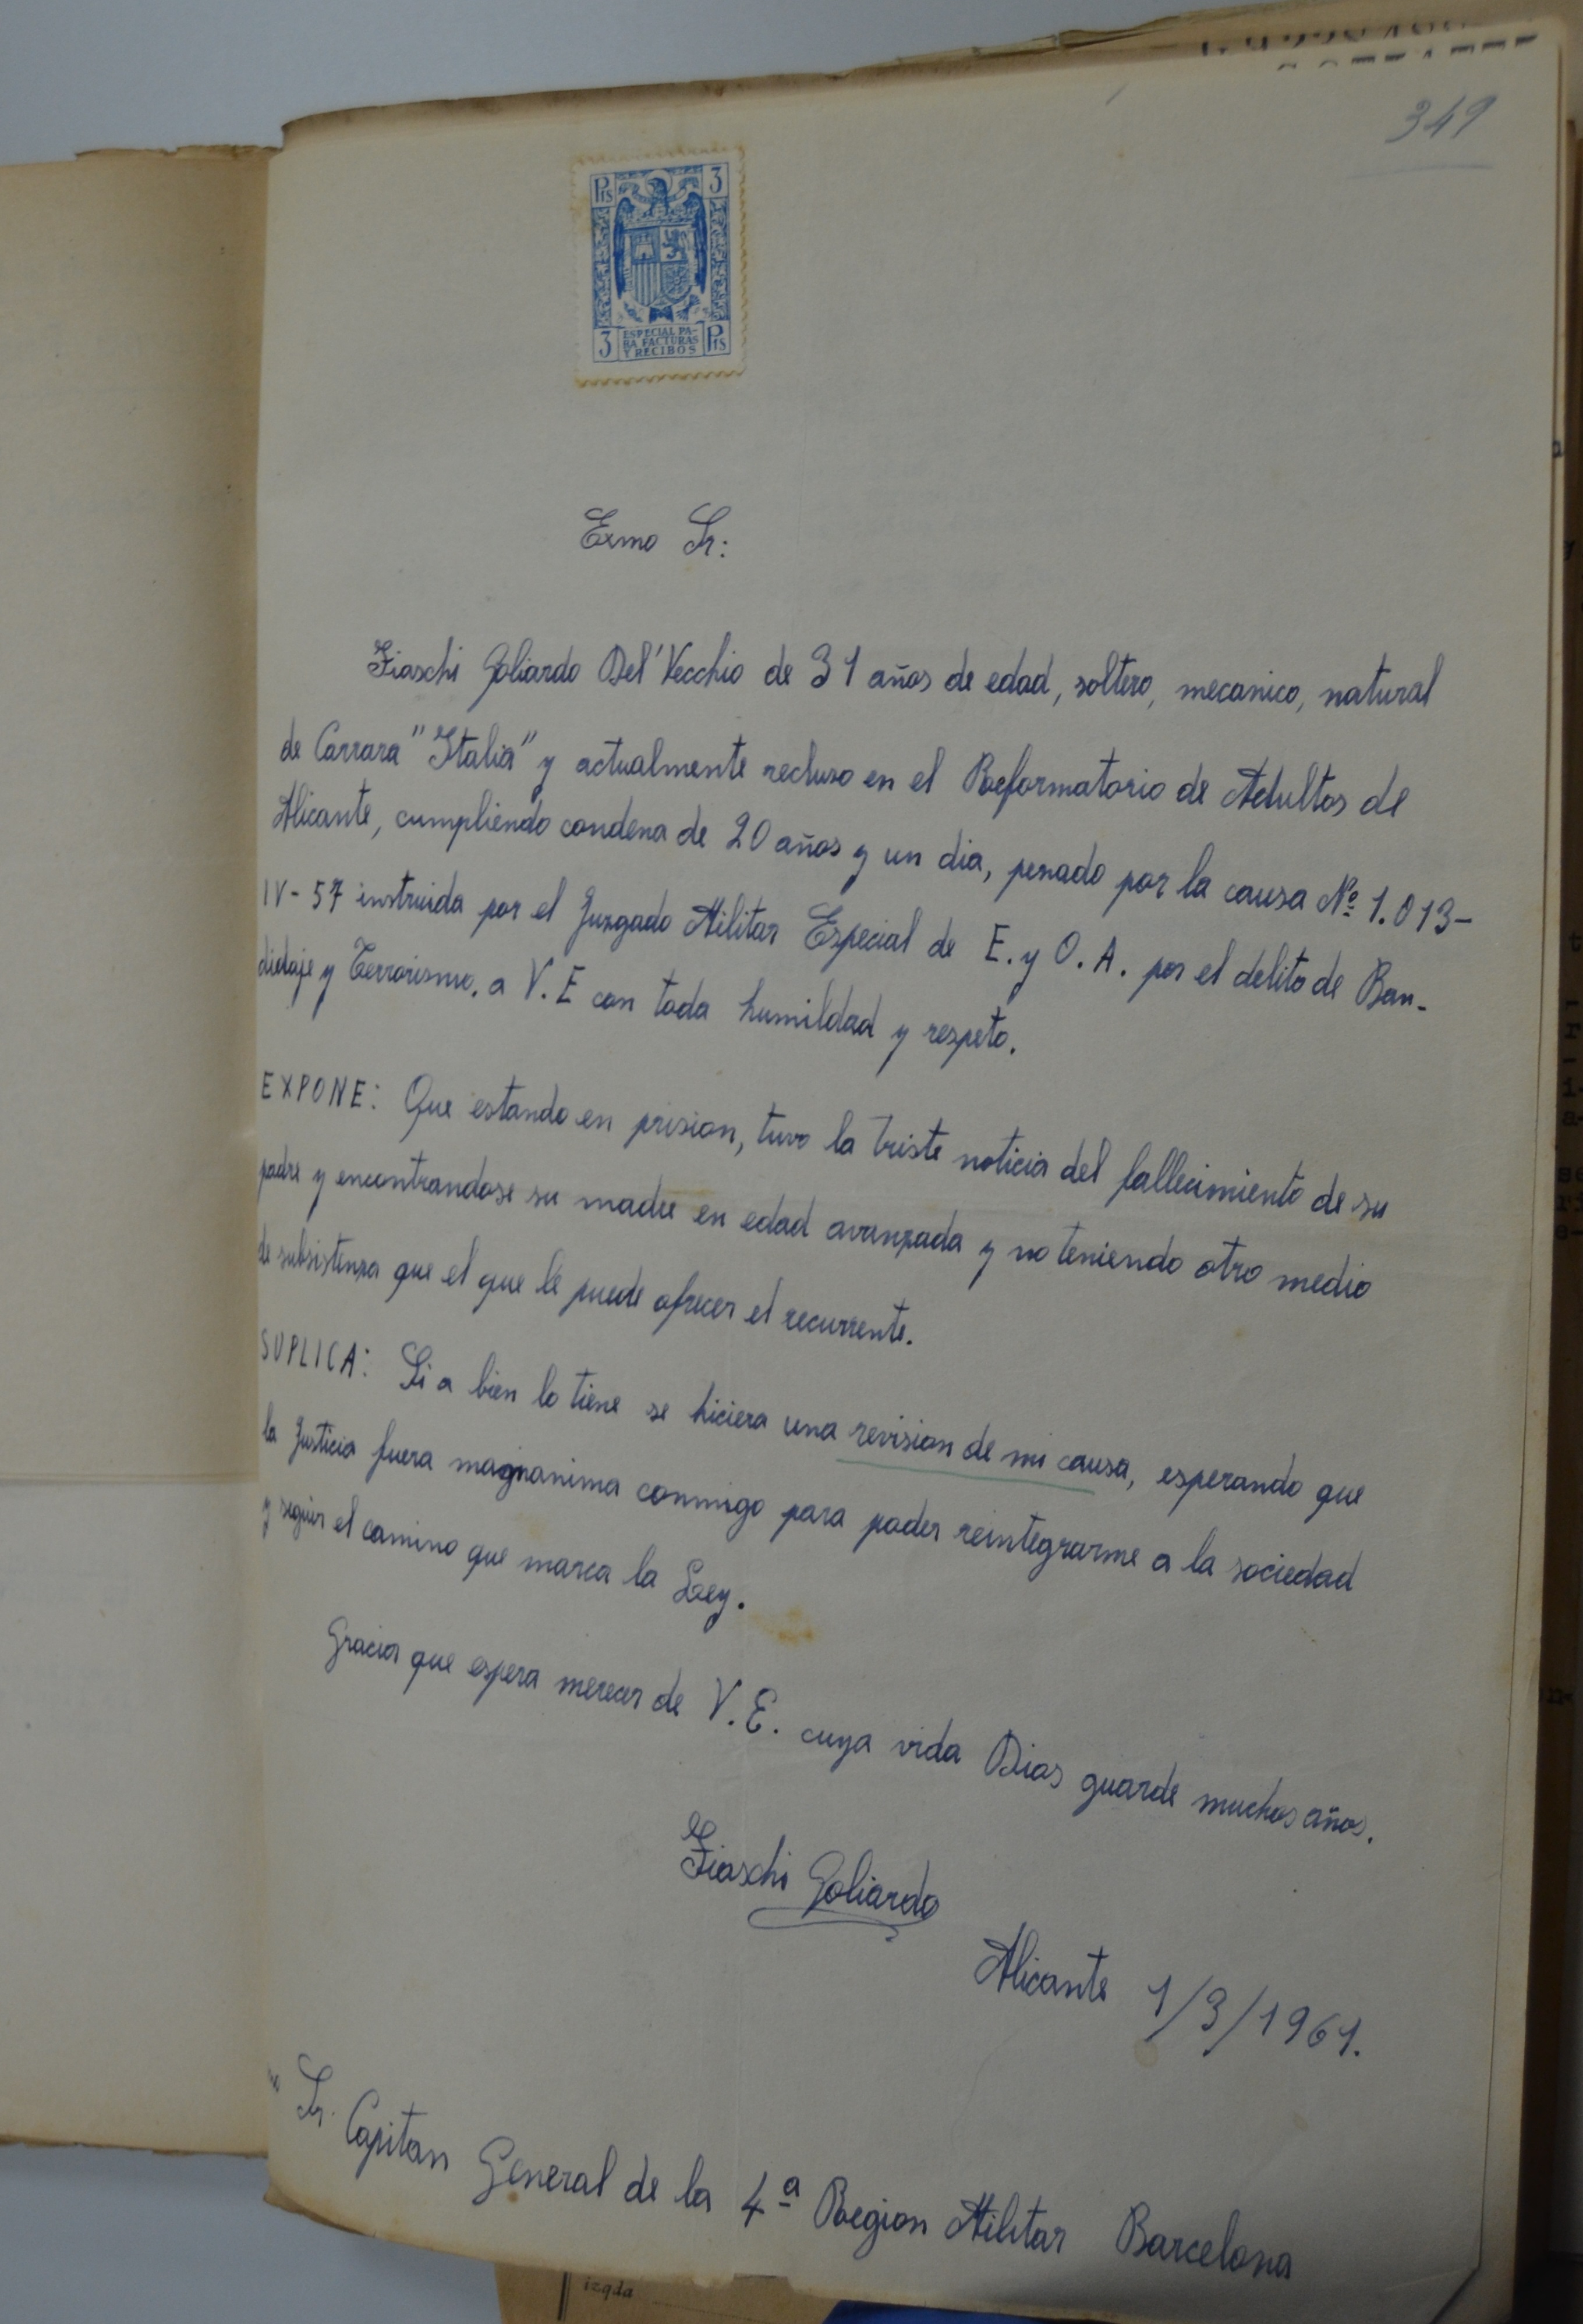 349
Pts 3
3 ESPECIAL PA-
RA FACTURAS
Y RECIBOS Pts
Exmo Sr:
Fiaschi Goliardo Del'Vecchio de 31 años de edad, soltero, mecanico, natural
de Carrara "Italia" y actualmente recluso en el Reformatorio de Adultos de
Alicante, cumpliendo condena de 20 años y un dia, penado por la causa Nº 1.013-
IV-57 instruida por el Juzgado Militar Especial de E. y O. A. por el delito de Ban-
didaje y Terrorismo. a V. E con toda humildad y respeto.
EXPONE: Que estando en prision, tuvo la triste noticia del fallecimiento de su
padre y encontrandose su madre en edad avanzada y no teniendo otro medio
de subsistenza que el que le puede ofrecer el recurrente.
SUPLICA: Si a bien lo tiene se hiciera una revision de mi causa, esperando que
la Justicia fuera magnanima conmigo para poder reintegrarme a la sociedad
y seguir el camino que marca la Ley.
Gracia que espera merecer de V. E. cuya vida Dios guarde muchos años.
Fiaschi Goliardo
Alicante 1/3/1961.
Sr. Capitan General de la 4ª Region Militar Barcelona
izqda